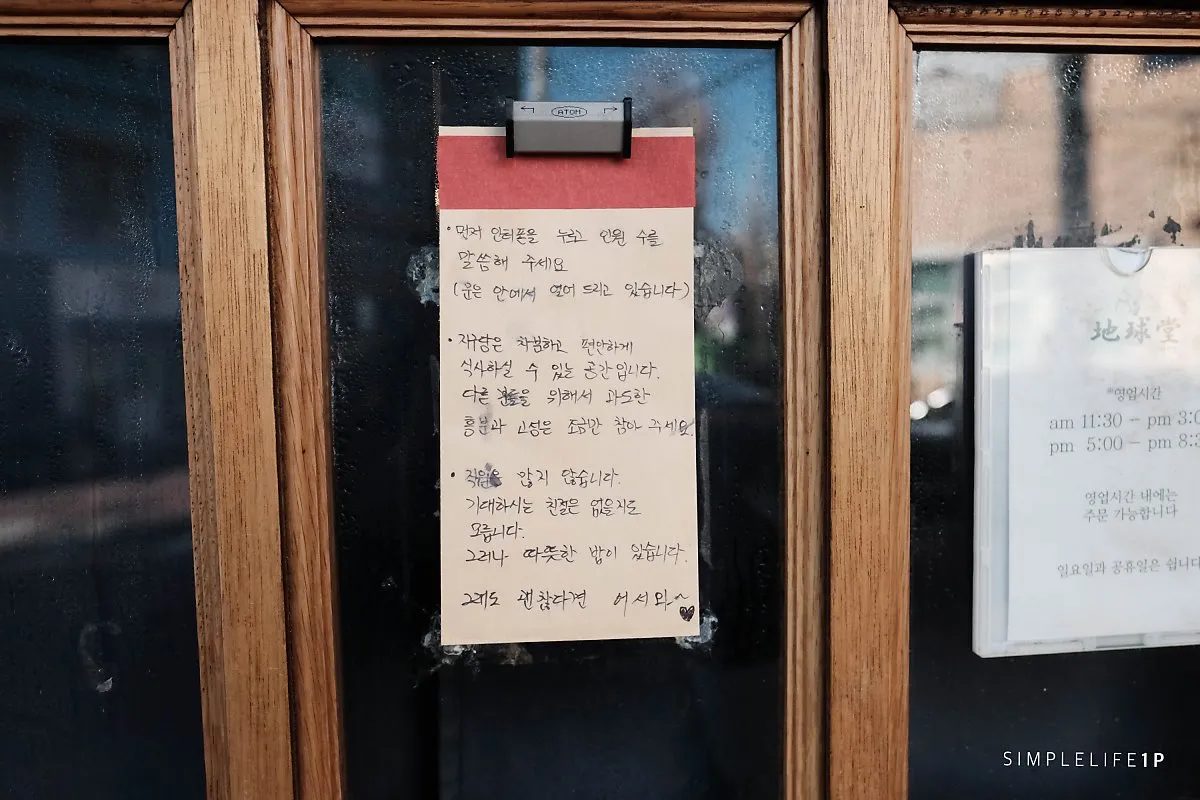 ATOM
• 먼저 인터폰을 누르고 인원 수를
말씀해 주세요
(문은 안에서 열어 드리고 있습니다)
• 지구당은 차분하고 편안하게
식사하실 수 있는 공간입니다.
다른 분들을 위해서 과도한
흥분과 고성은 조금만 참아 주세요.
• 직원은 많지 않습니다.
기대하시는 친절은 없을지도
모릅니다.
그러나 따뜻한 밥이 있습니다.
그래도 괜찮다면 어서와~
地球堂
*영업시간
am 11:30 - pm 3:0
pm 5:00 - pm 8:3
영업시간 내에는
주문 가능합니다
일요일과 공휴일은 쉽니다
SIMPLELIFE1P